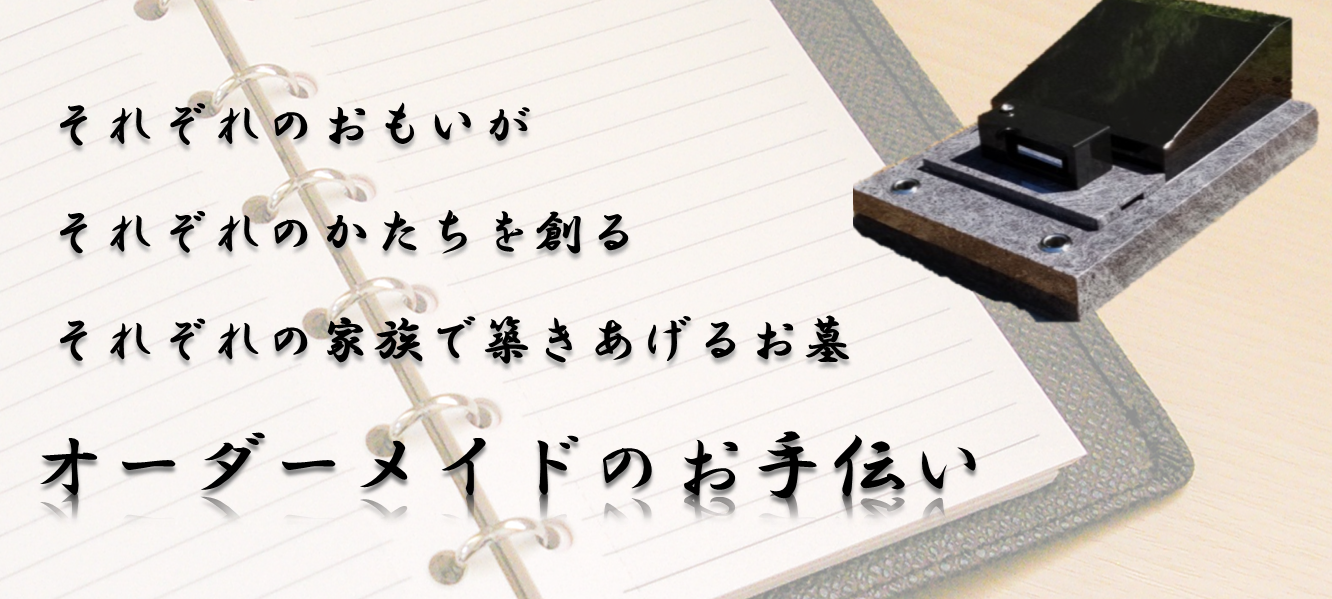 それぞれのおもいが
それぞれのかたちを創る
それぞれの家族で築きあげるお墓
オーダーメイドのお手伝い